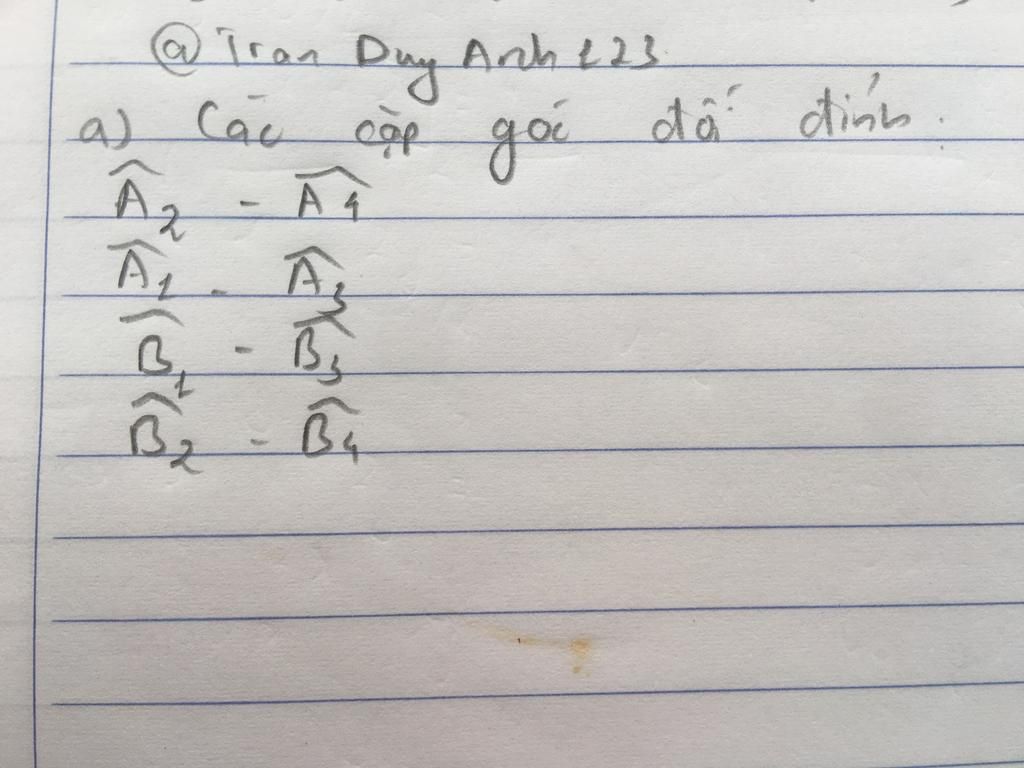 @ Tran Duy Anh 123
a) Các cặp góc đối đỉnh.
Â₂ - Â₄
Â₁ - Â₃
B̂₁ - B̂₃
B̂₂ - B̂₄